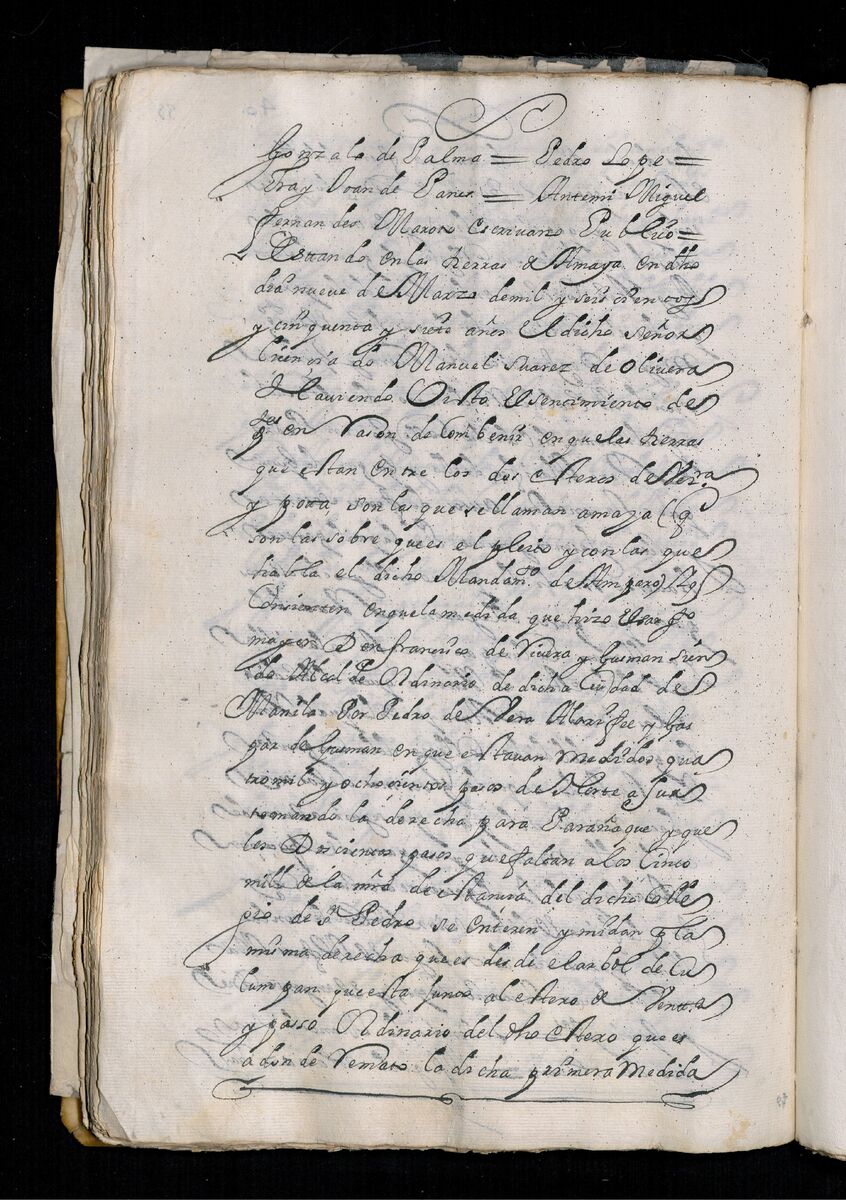 Gonzalo de Palma = Pedro Lope =
era y Joan de Pares = Antemi Miguel
fernandes Maroto escrivano Publico =
Estando en las tierras de Amaya en dho
dia nueve de Marzo de mil y seis cientos
y cinquenta y siete años el dicho señor
licenciado Manuel suarez de olivera
Haviendo Visto el sentimiento de
ptes en Rason de combenir en que las tierras
que estan entre los dos esteros de
y pora, son las que se llaman amaya (q
son las sobre que es el pleito y con las que
habla el dicho Mandamto de Amparo)
Consienten en que la medida que hizo el sargto
mayor Don francisco de Rivera y Gusman sien
do Alcalde Ordinario de dicha Ciudad de
Manila Por Pedro de Vera Alarife y Gas
par de Gusman en que estavan medidos qua
tro mil y ochocientos pasos de Norte a sur
tomando la derecha para Parañaque y que
los Doscientos pasos que faltan a los cinco
mill de la mrd de estancia del dicho Colle
gio de sn Pedro se enteren y midan p la
misma derecha que es desde el arbol de Cu
lumpan que esta junto al estero de
y passo Ordinario del dho estero que es
a donde Remato la dicha primera medida